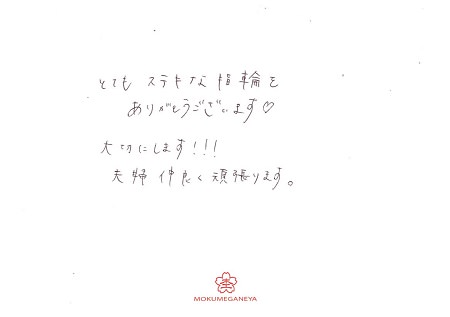 とても ステキな 指輪を
ありがとうございます♡
大切にします!!!
夫婦仲良く頑張ります。
MOKUMEGANEYA